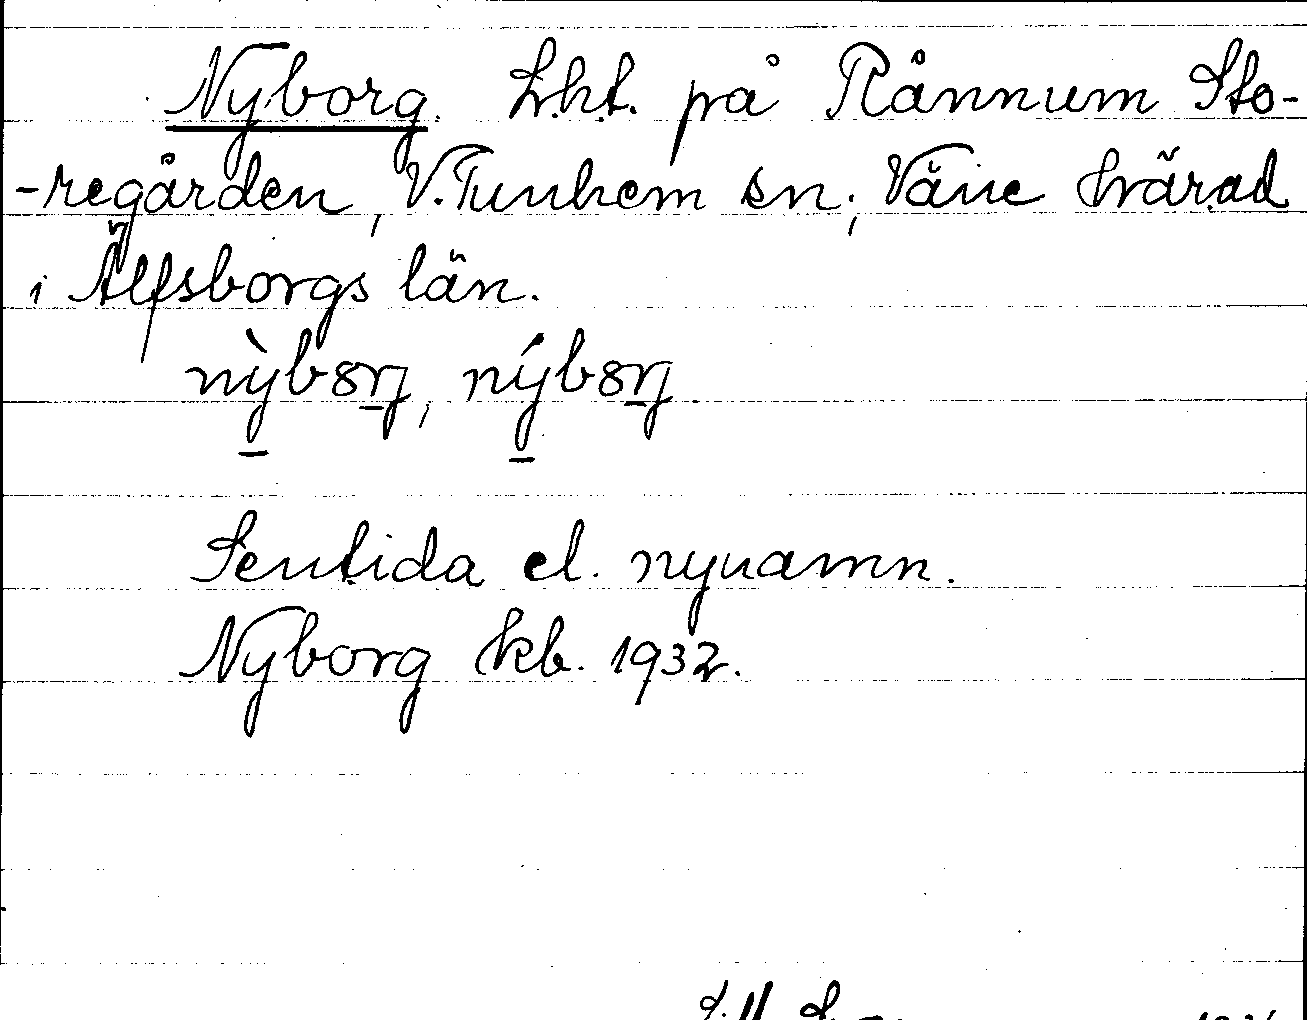 Nyborg. Lht. på Rånnum Sto-
-regården, V. Tunhem sn, Väne härad
i Älfsborgs län.
nỳbȣrj, nýbȣrj
Sentida el. nynamn.
Nyborg kb. 1932.